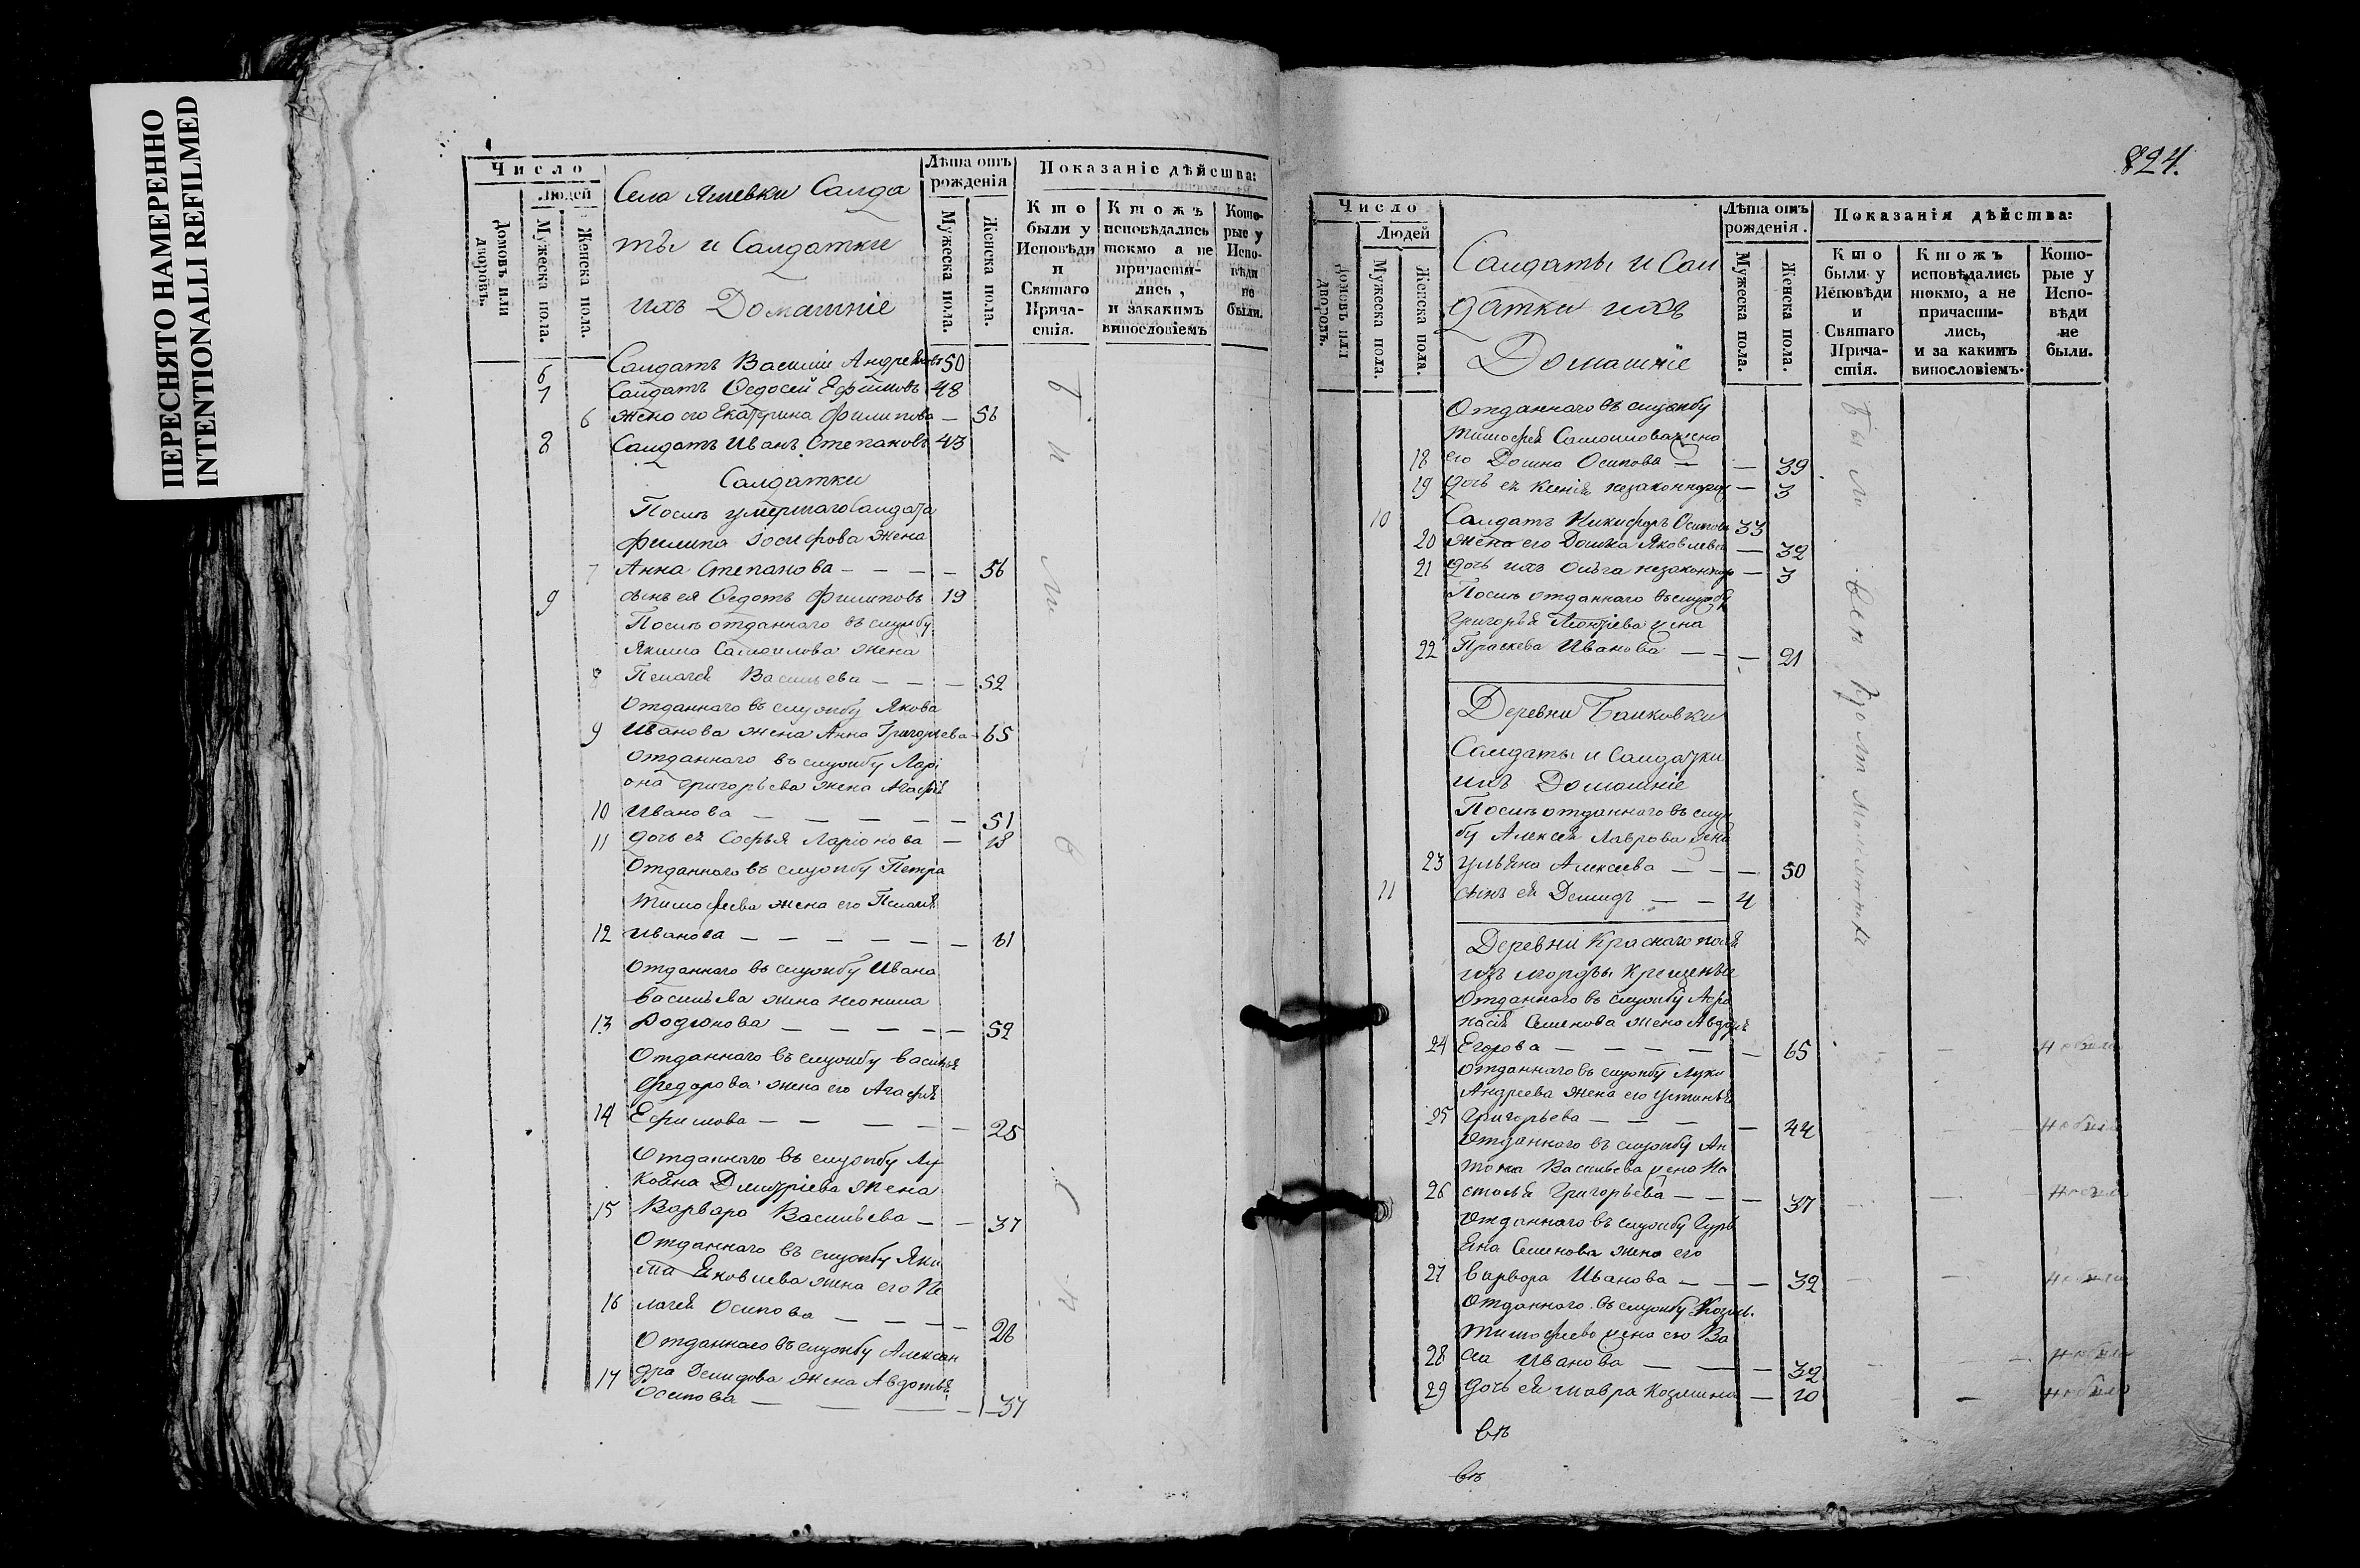 ПЕРЕСНЯТО НАМЕРЕННО
INTENTIONALLI REFILMED
Число
Людей
Домовъ или дворовъ.
Мужеска пола.
Женска пола.
Села Ягиевки Салда
ты и Салдатки
ихъ Домашніе
Лѣта отъ рожденія
Мужеска пола.
Женска пола.
Показаніе дѣйства:
Кто были у Исповѣди и Святаго Прича-стія.
Ктожъ исповѣдались токмо а не причасти-лись, и закакимъ винословіемъ
Кото-рые у Испо-вѣди не были.
6 Салдатъ Василіи Андреевъ 50
7 Салдатъ Ѳедосей Ефимовъ 48
6 жена его Екатерина Филипова — 56
8 Салдатъ Иванъ Степановъ 43
Салдатки
Послѣ умершаго Салдата
Филипа Іосифова жена
7 Анна Степанова — — — — 56
9 сынъ ея Ѳедотъ Филиповъ 19
Послѣ отданнаго въ службу
Якима Самоилова жена
8 Пелагея Васильева — — — 52
Отданнаго въ службу Якова
9 Иванова жена Анна Григорьева 65
Отданнаго въ службу Ларі
она Григорьева жена Агафія
10 Иванова — — — — — 51
11 дочь ея Софья Ларіонова — 18
Отданнаго въ службу Петра
Тимофеева жена его Пелагея
12 Иванова — — — — — — 61
Отданнаго въ службу Ивана
Васильева жена Неонила
13 Родионова — — — — — 52
Отданнаго въ службу Василья
Ѳедорова жена его Агафія
14 Ефимова — — — — — 25
Отданнаго въ службу Лу
кояна Дмитріева жена
15 Варвара Васильева — — 37
Отданнаго въ службу Яки
ма Яковлева жена его Пе
16 лагея Осипова — — — — 26
Отданнаго въ службу Алексан
дра Демидова жена Авдотья
17 Осипова — — — — 37
824.
Число
Людей
Домовъ или дворовъ.
Мужеска пола.
Женска пола.
Салдаты и Сал
датки ихъ
Домашніе
Лѣта отъ рожденія.
Мужеска пола.
Женска пола.
Показанія дѣйства:
Кто были у Исповѣди и Святаго Прича-стія.
Ктожъ исповѣдались токмо, а не причасти-лись, и за какимъ винословіемъ.
Кото-рые у Испо-вѣди не были.
Отданнаго въ службу
Тимофея Самоилова жена
18 его Домна Осипова — — 39
19 дочь ея Ксенія незаконнорож — 3
10 Салдатъ Никифоръ Осиповъ 33
20 жена его Домна Яковлева — 32
21 дочь ихъ Ольга незаконнор — 3
Послѣ отданнаго въ службу
Григорья Леонтіева жена
22 Праскева Иванова — — — 21
Деревни Балковки
Салдаты и Салдатки
ихъ Домашніе
Послѣ отданнаго въ служ
бу Алексея Лаврова жена
23 Ульяна Алексеева — — — 50
11 сынъ ея Демидъ — — 4
Деревни Краснаго поля
изъ мордвы крещены
Отданнаго въ службу Афа
насія Семенова жена Авдотья
24 Егорова — — — — — 65 — не были
Отданнаго въ службу Луки
Андреева жена его Устинья
25 Григорьева — — — — 44 не были
Отданнаго въ службу Ан
тона Васильева жена На
26 стасья Григорьева — — — 37 — не были
Отданнаго въ службу Гурь
яна Семенова жена его
27 Варвора Иванова — — — 32 — не были
Отданнаго въ службу Козмы
Тимофеева жена его Ва
28 са Иванова — — — 32 не были
29 дочь ея Мавра Козмина — 10 — не были
въ
въ